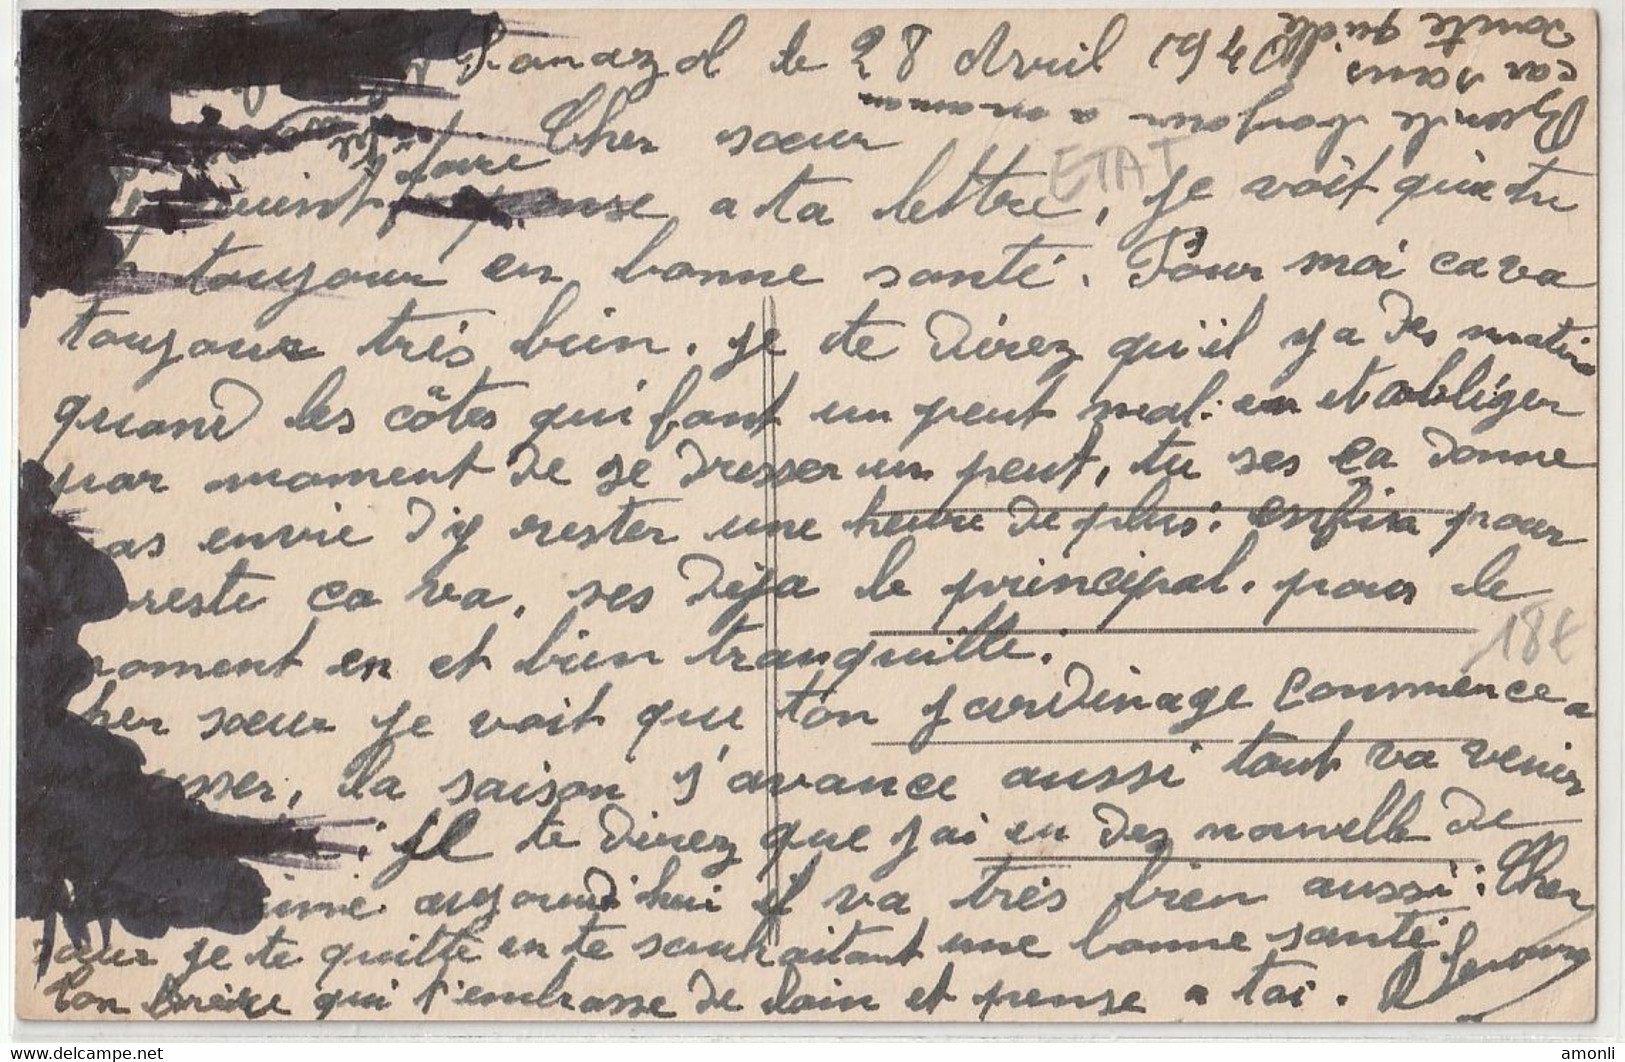 le 28 Avril
Cher sœur
faire
a ta lettre, je voit que tu
toujour en bonne santé. Pour moi ca va
toujour très bien. je te direz qu'il y a des matin
quand les côtes qui font un peut mal. on et obliger
par moment de se dresser un peut, tu ses ça donne
pas envie d'y rester une heure de plus: enfin pour
reste ca va, ses déja le principal. pour le
moment en et bien tranquille.
Cher sœur je voit que ton jardinage commence a
pousser, la saison s'avance aussi tout va venir
je te direz que j'ai eu des nouvelle de
aujourd'hui il va très bien aussi: Cher
sœur je te quitte en te souhaitant une bonne santé
ton frère qui t'embrasse de loin et pense a toi.
bonjour a maman
car sans
ETAT
18€
amonli